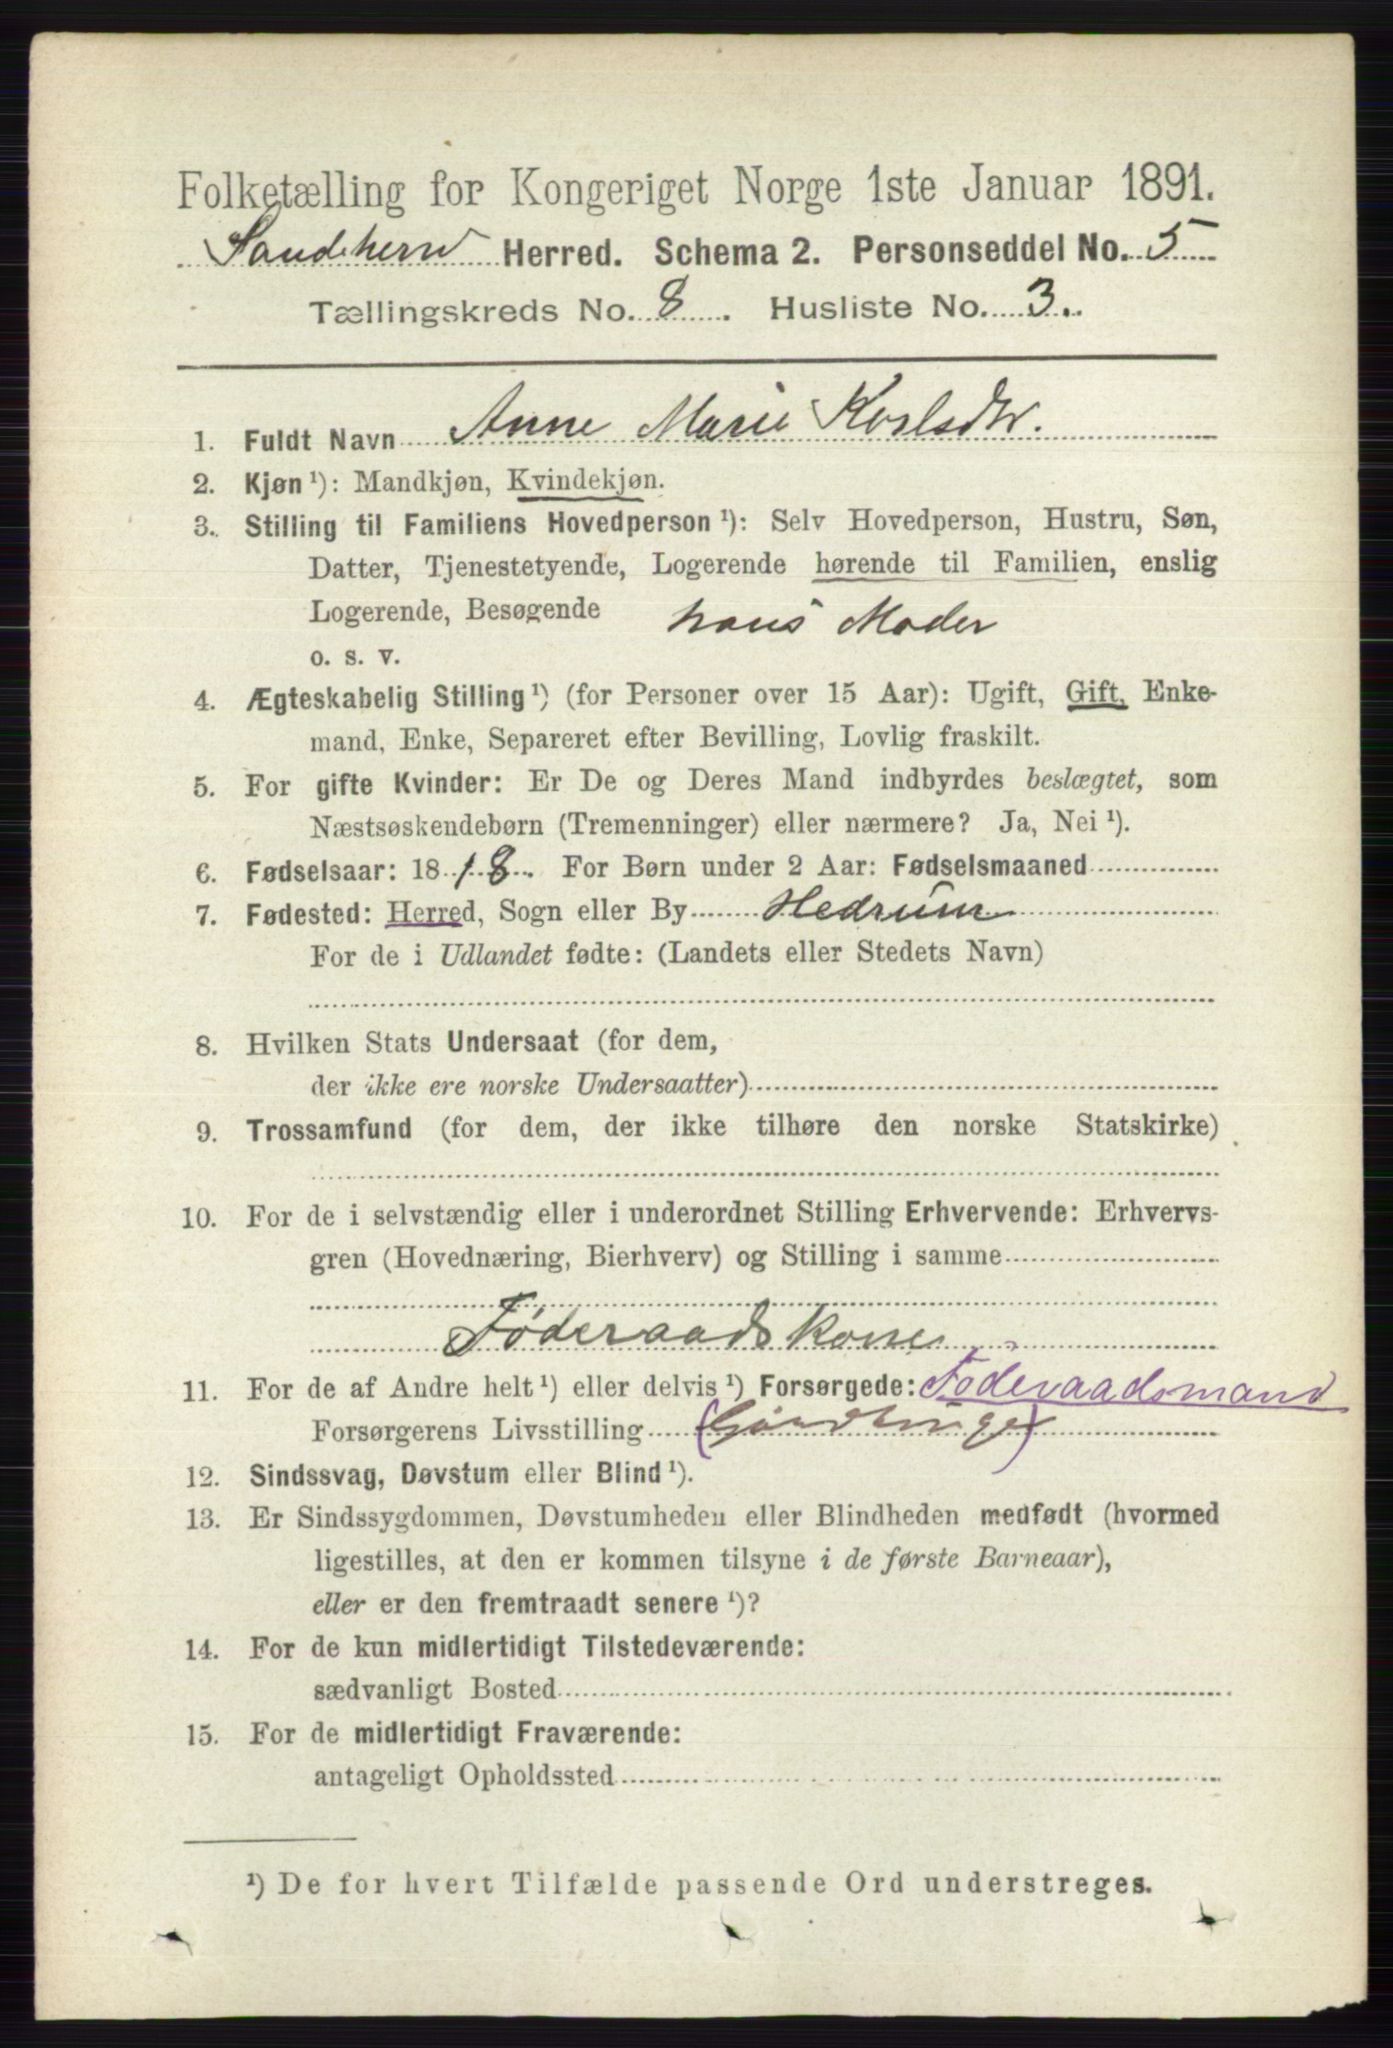 Folketælling for Kongeriget Norge 1ste Januar 1891.
Sandeherred Herred. Schema 2. Personseddel No. 5
Tællingskreds No. 8. Husliste No. 3.
1. Fuldt Navn Anne Marie Karlsdtr.
2. Kjøn ¹): Mandkjøn, Kvindekjøn.
3. Stilling til Familiens Hovedperson ¹): Selv Hovedperson, Hustru, Søn,
Datter, Tjenestetyende, Logerende hørende til Familien, enslig
Logerende, Besøgende hans Moder
o. s. v.
4. Ægteskabelig Stilling ¹) (for Personer over 15 Aar): Ugift, Gift, Enke-
mand, Enke, Separeret efter Bevilling, Lovlig fraskilt.
5. For gifte Kvinder: Er De og Deres Mand indbyrdes beslægtet, som
Næstsøskendebørn (Tremenninger) eller nærmere? Ja, Nei ¹).
6. Fødselsaar: 1818. For Børn under 2 Aar: Fødselsmaaned
7. Fødested: Herred, Sogn eller By Hedrum
For de i Udlandet fødte: (Landets eller Stedets Navn)
8. Hvilken Stats Undersaat (for dem,
der ikke ere norske Undersaatter)
9. Trossamfund (for dem, der ikke tilhøre den norske Statskirke)
10. For de i selvstændig eller i underordnet Stilling Erhvervende: Erhvervs-
gren (Hovednæring, Bierhverv) og Stilling i samme
Føderaadskone
11. For de af Andre helt ¹) eller delvis ¹) Forsørgede: Føderaadsmand
Forsørgerens Livsstilling (Gaardbruger)
12. Sindssvag, Døvstum eller Blind ¹).
13. Er Sindssygdommen, Døvstumheden eller Blindheden medfødt (hvormed
ligestilles, at den er kommen tilsyne i de første Barneaar),
eller er den fremtraadt senere ¹)?
14. For de kun midlertidigt Tilstedeværende:
sædvanligt Bosted
15. For de midlertidigt Fraværende:
antageligt Opholdssted
¹) De for hvert Tilfælde passende Ord understreges.